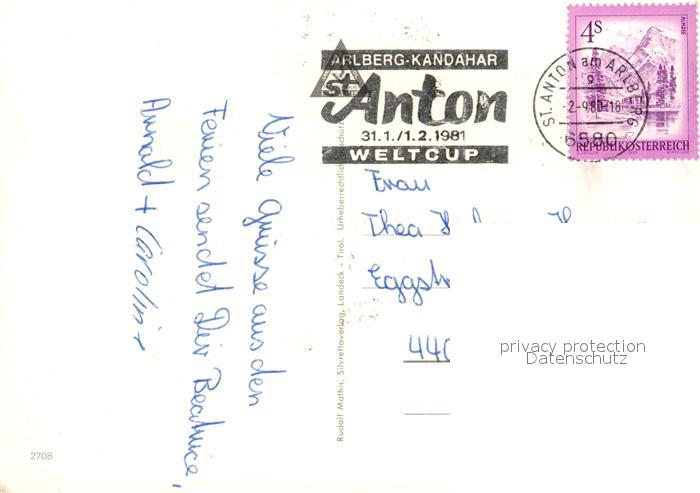 ARLBERG-KANDAHAR
St. Anton
31.1./1.2.1981
WELTCUP
4S
ALMSEE
REPUBLIK ÖSTERREICH
ST. ANTON am ARLBERG
-2-9.80-18
6580
Viele Grüsse aus den
Ferien sendet Dir Beatrice,
Arnold + Carolin
Frau
Thea H
Eggst
44
Rudolf Mathis, Silvrettaverlag, Landeck - Tirol. Urheberrechtlich
2708
privacy protection
Datenschutz